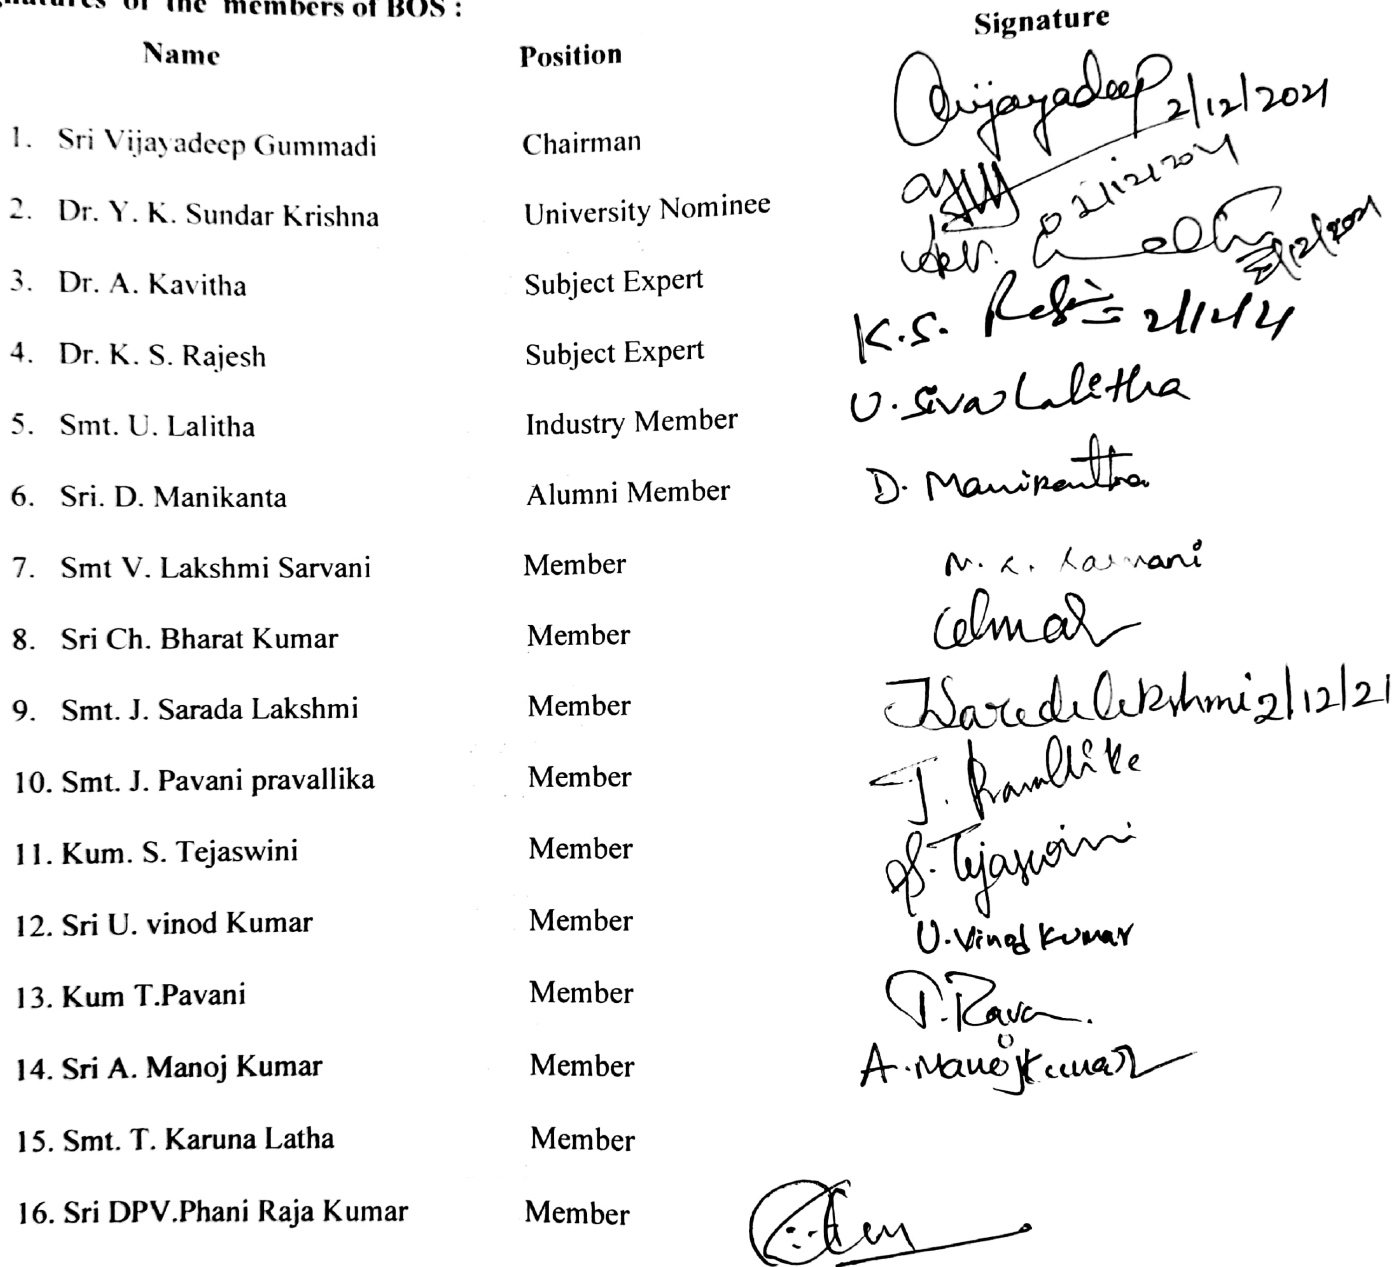 natures of the members of BOS :
Name Position Signature
1. Sri Vijayadeep Gummadi Chairman Gvijayadeep 2/12/2021
2. Dr. Y. K. Sundar Krishna University Nominee 02/12/2021
3. Dr. A. Kavitha Subject Expert 2/12/2021
4. Dr. K. S. Rajesh Subject Expert K.S. 2/12/21
5. Smt. U. Lalitha Industry Member U. Siva Lalitha
6. Sri. D. Manikanta Alumni Member D. Manikantha
7. Smt V. Lakshmi Sarvani Member
8. Sri Ch. Bharat Kumar Member
9. Smt. J. Sarada Lakshmi Member JSaradalakshmi 2/12/21
10. Smt. J. Pavani pravallika Member J. Pravallika
11. Kum. S. Tejaswini Member S. Tejaswini
12. Sri U. vinod Kumar Member U. Vinod Kumar
13. Kum T.Pavani Member
14. Sri A. Manoj Kumar Member A. Manoj Kumar
15. Smt. T. Karuna Latha Member
16. Sri DPV.Phani Raja Kumar Member